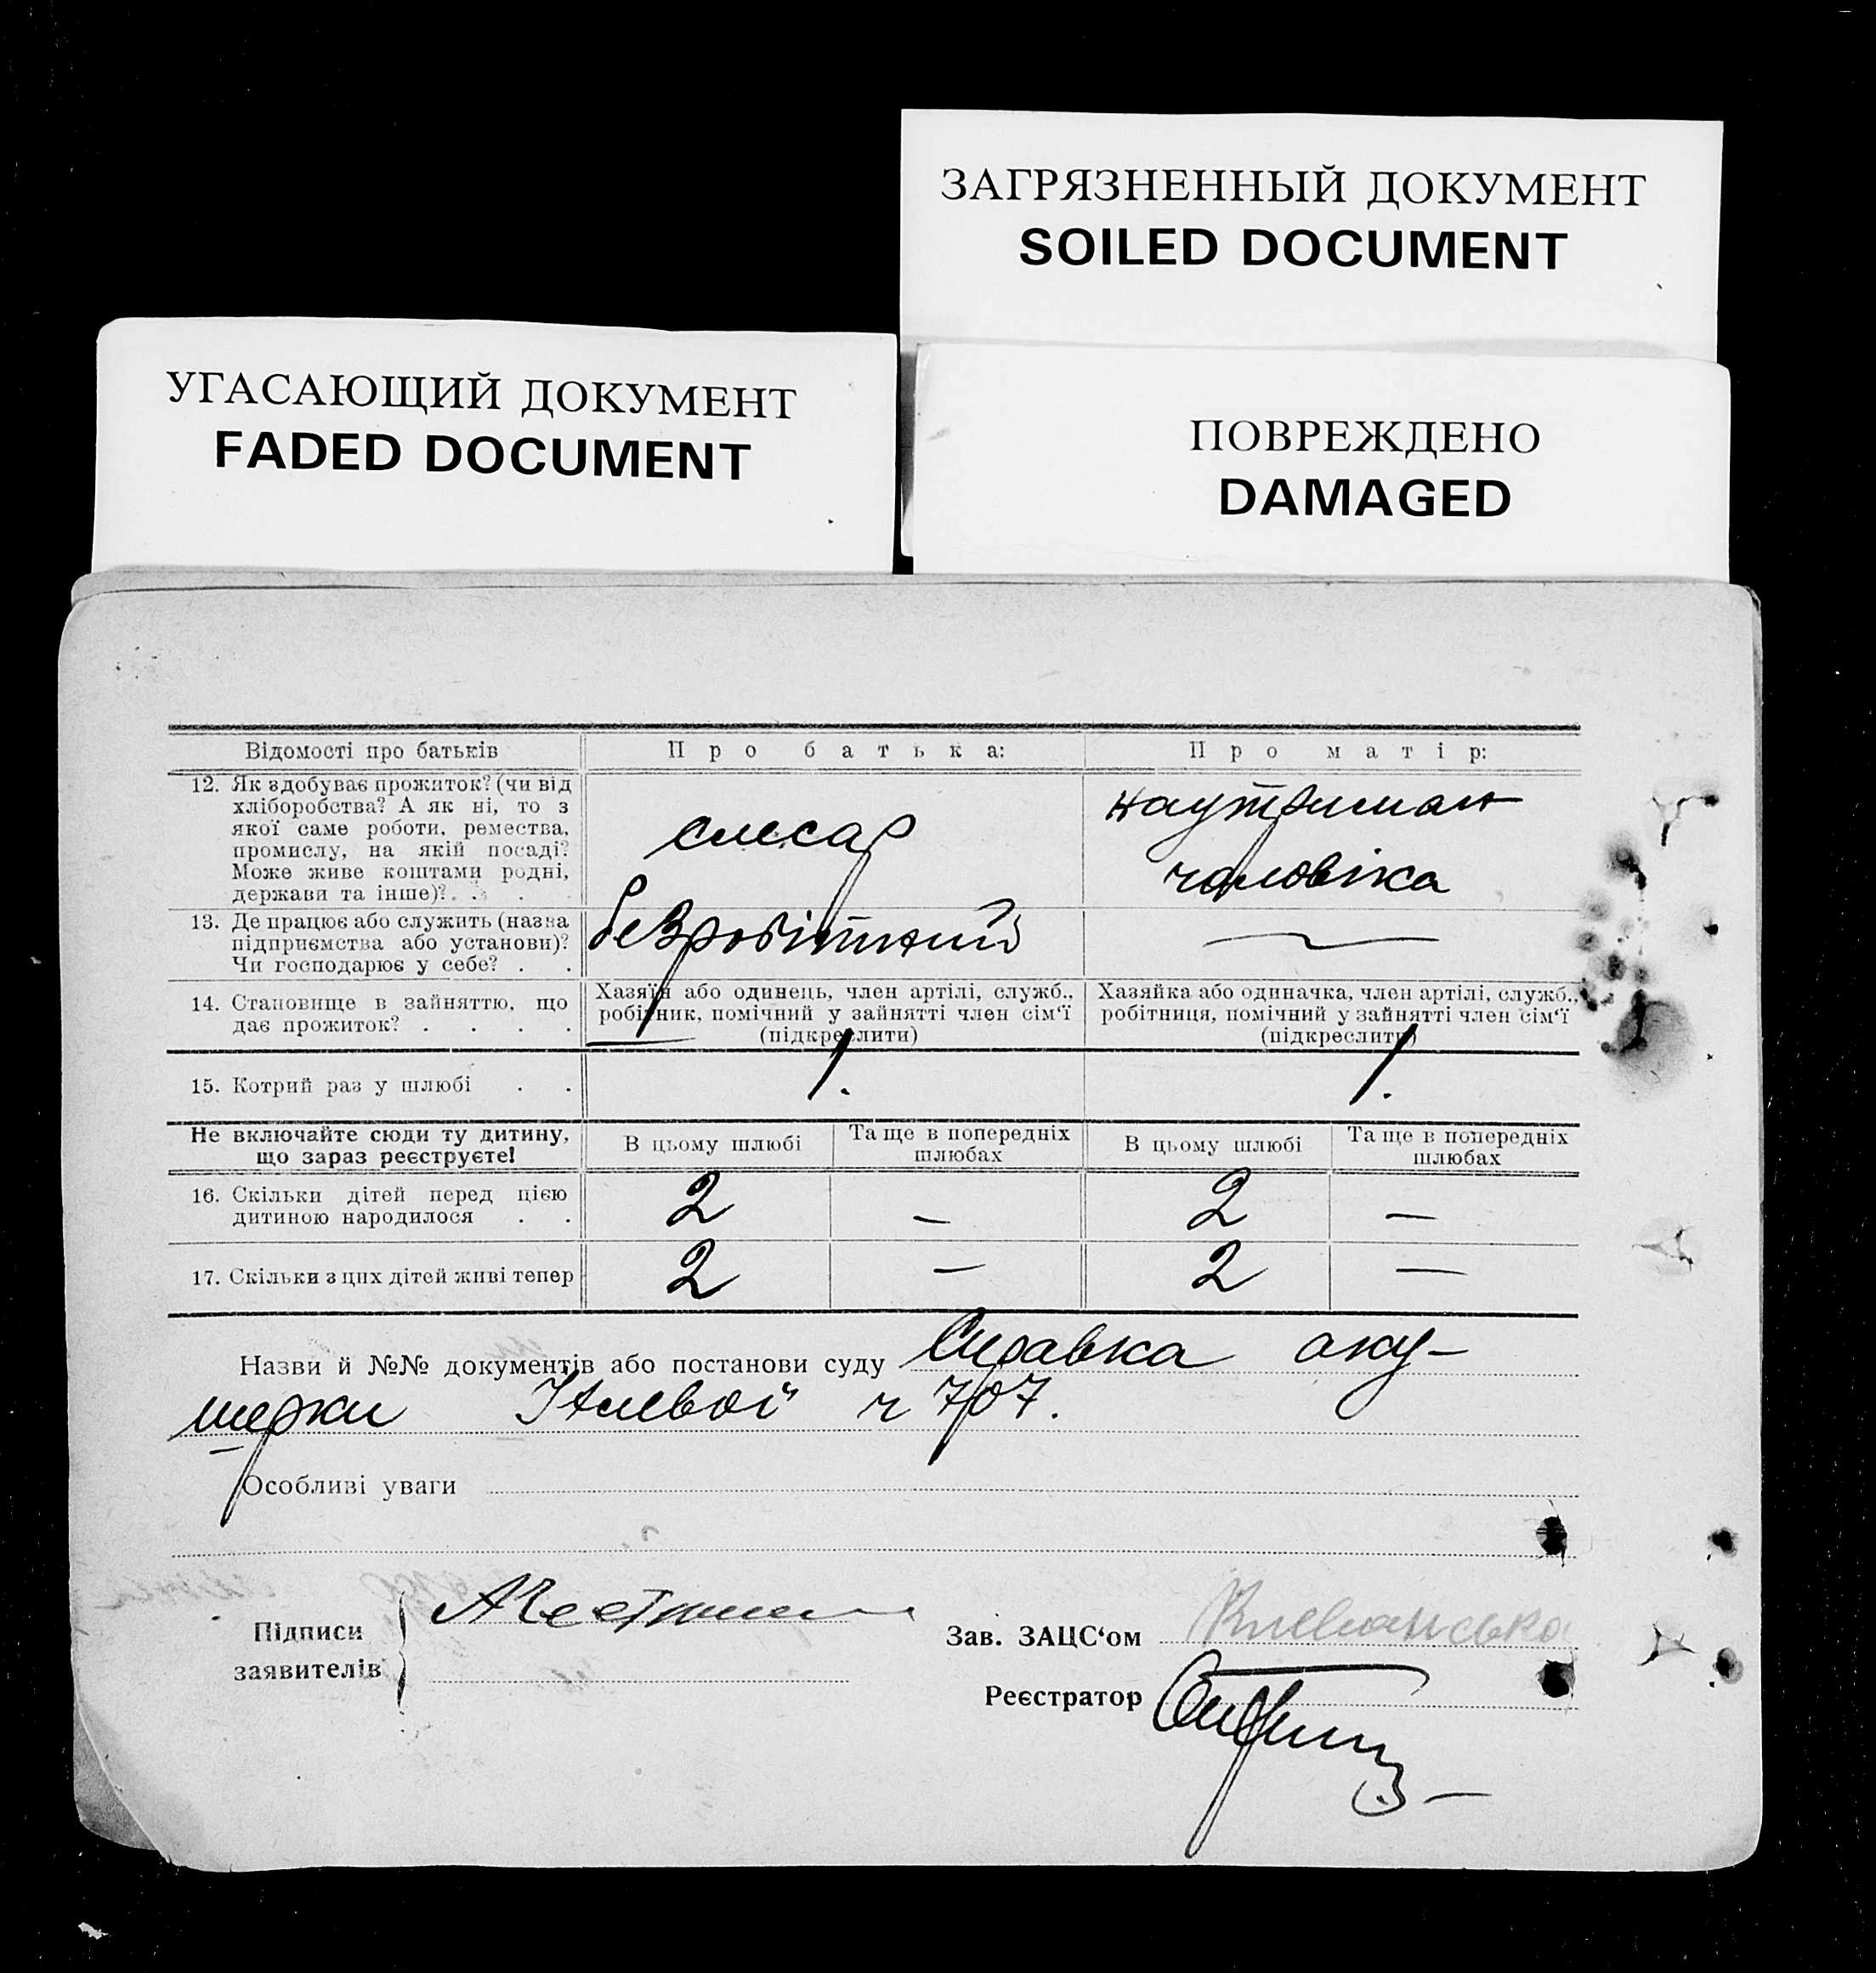 ЗАГРЯЗНЕННЫЙ ДОКУМЕНТ
SOILED DOCUMENT
УГАСАЮЩИЙ ДОКУМЕНТ
FADED DOCUMENT
ПОВРЕЖДЕНО
DAMAGED
Відомості про батьків
Про батька:
Про матір:
12. Як здобуває прожиток? (чи від
хліборобства? А як ні, то з
якої саме роботи, ремества,
промислу, на якій посаді?
Може живе коштами родні,
держави та інше)? . .
слесар
наутриман
чоловіка
13. Де працює або служить (назва
підприємства або установи)?
Чи господарює у себе? . .
безробітний
—
14. Становище в зайняттю, що
дає прожиток? . . . .
Хазяїн або одинець, член артілі, служб.,
робітник, помічний у зайнятті член сім‘ї
(підкреслити)
Хазяйка або одиначка, член артілі, служб.,
робітниця, помічний у зайнятті член сім‘ї
(підкреслити)
15. Котрий раз у шлюбі . .
1.
1.
Не включайте сюди ту дитину,
що зараз реєструєте!
В цьому шлюбі
Та ще в попередніх
шлюбах
В цьому шлюбі
Та ще в попередніх
шлюбах
16. Скільки дітей перед цією
дитиною народилося . .
2
—
2
—
17. Скільки з цих дітей живі тепер
2
—
2
—
Назви й №№ документів або постанови суду Справка аку-
шерки ч 707.
Особливі уваги
Підписи
заявителів
Зав. ЗАЦС‘ом
Реєстратор